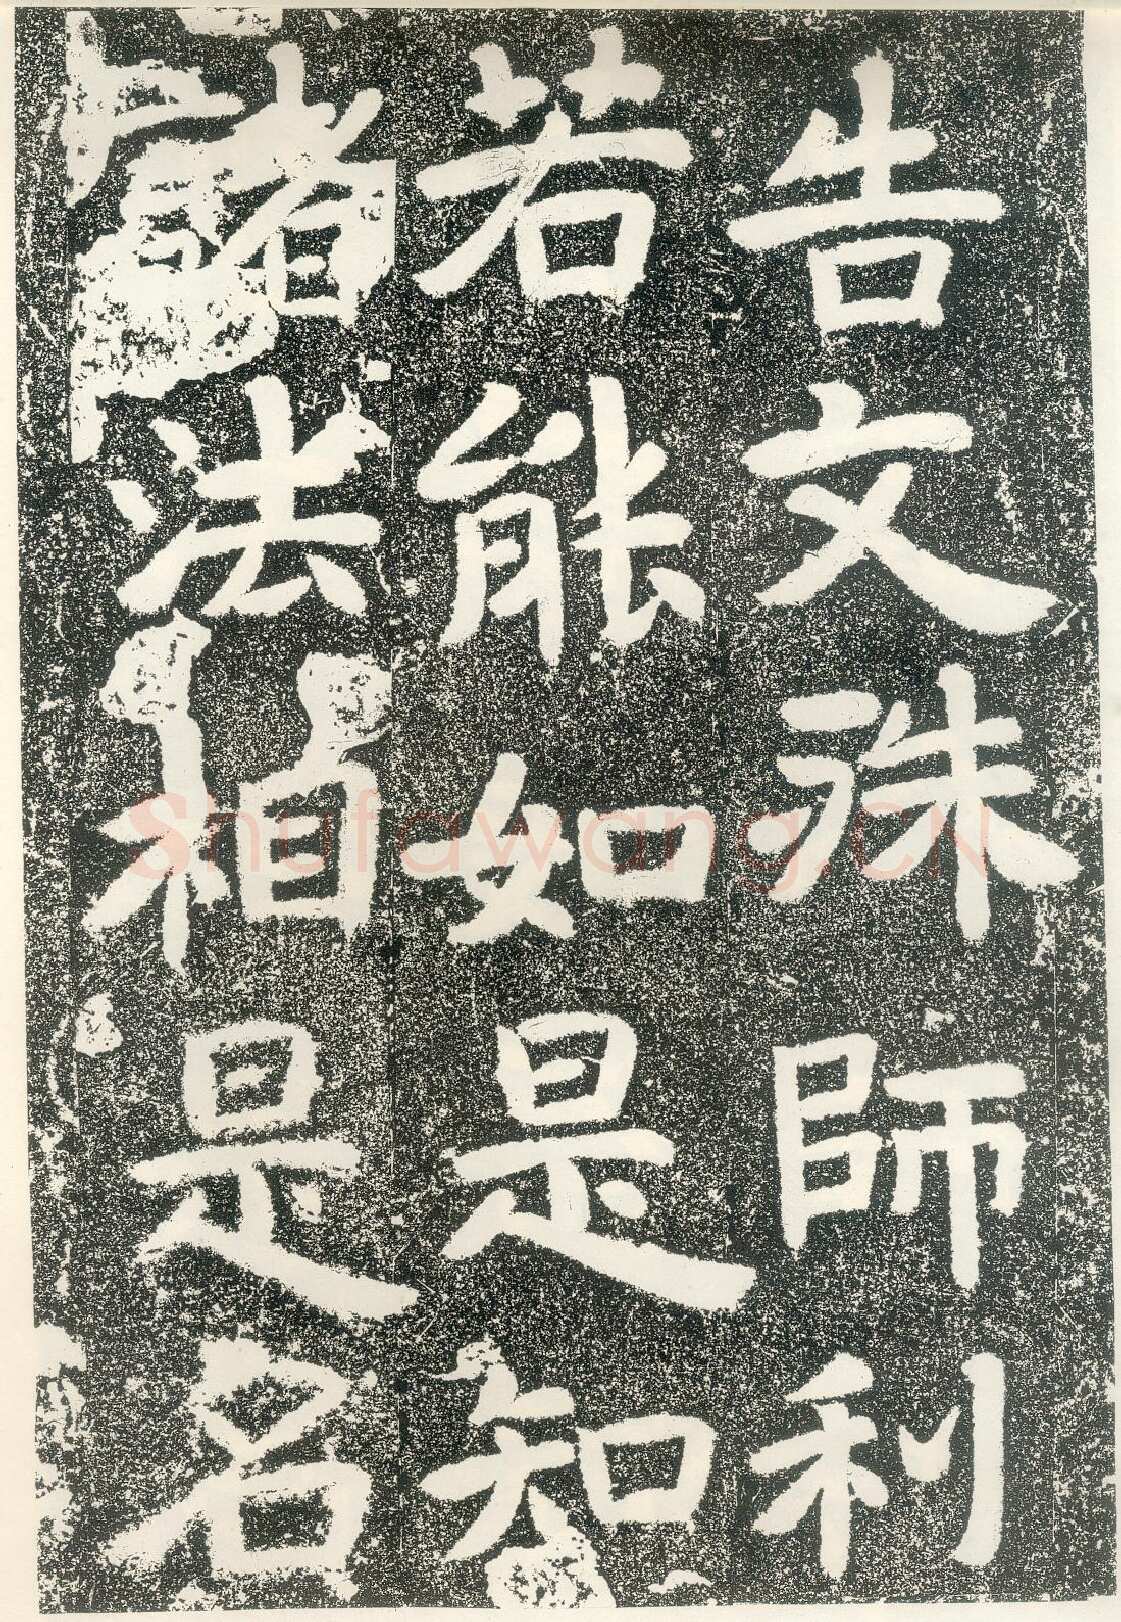 告文殊師利
若能如是知
諸法相是名
Shufawang.CN